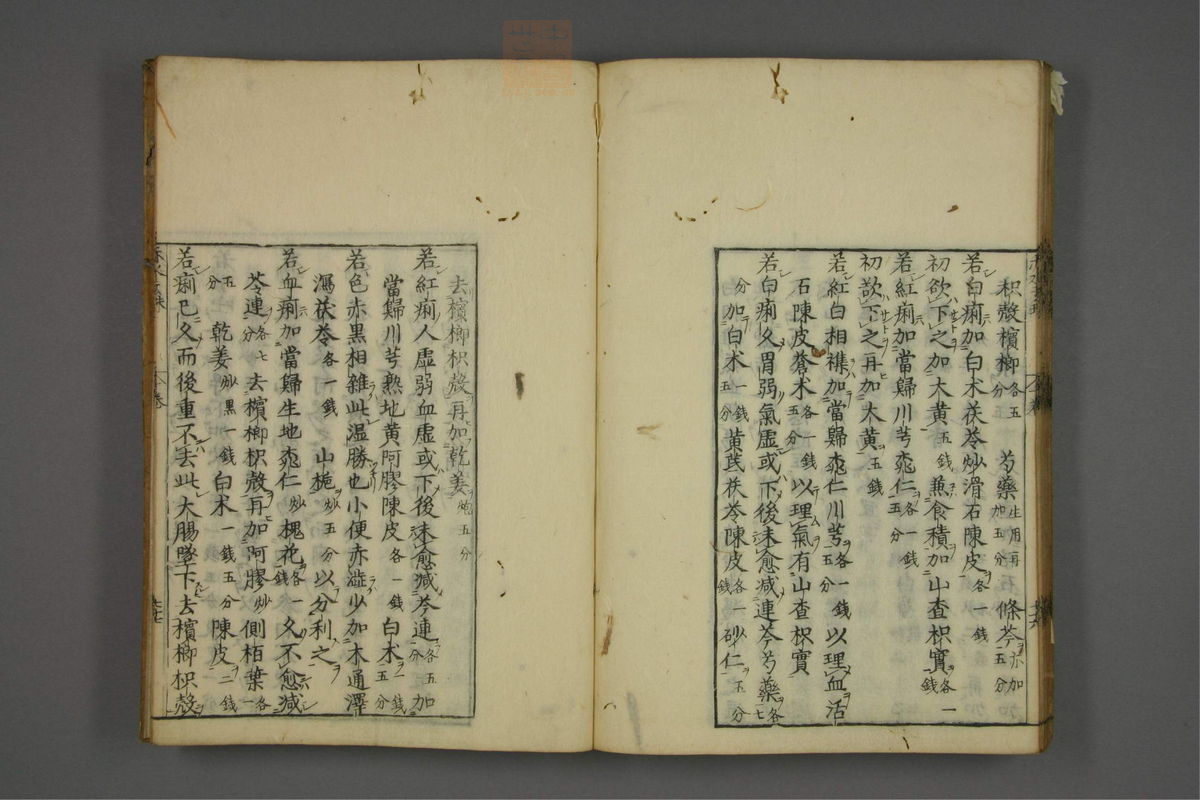 枳殼檳榔各五分 芍藥生用再加五分 條芩亦加五分
若白痢加白术茯苓炒滑石陳皮各一錢
初欲下之加大黃五錢兼食積加山查枳實各一錢
若紅痢加當歸川芎桃仁各一錢五分
初欲下之再加大黃五錢
若紅白相襍加當歸桃仁川芎各一錢五分以理血活
石陳皮蒼术各一錢五分以理氣有山查枳實
若白痢久胃弱氣虛或下後未愈減連芩芍藥各七
分加白术一錢五分黃茋茯苓陳皮各一錢砂仁五分
去檳榔枳殼再加乾姜炮五分
若紅痢人虛弱血虛或下後未愈減芩連各五分加
當歸川芎熟地黃阿膠陳皮各一錢白术一錢五分
若色赤黑相雜此湿勝也小便赤澁少加木通澤
瀉茯苓各一錢山梔炒五分以分利之
若血痢加當歸生地桃仁炒槐花各一錢久不愈減
芩連各七分去檳榔枳殼再加阿膠炒側栢葉各一
五分乾姜炒黑一錢白术一錢五分陳皮二錢
若痢已久而後重不去此大腸墜下去檳榔枳殼